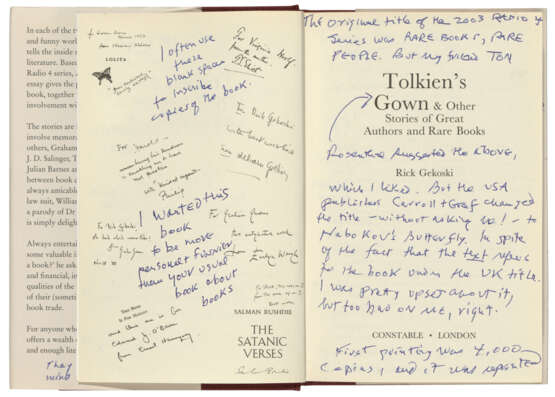 In each of the tw
and funny worl
tells the inside s
literature. Based
Radio 4 series, a
essay gives the p
book, together
involvement wi
The stories are
involve memora
others, Graham
J. D. Salinger, T
Julian Barnes a
between book d
always amicable
law suit, William
a parody of Dr
is simply delight
Always entertai
some valuable i
a book?' he ask
and financial, in
qualities of the
of their (someti
book trade.
For anyone wh
offers a wealth
and enough lite
They
mind
LOLITA
I often use
these
blank spaces
to inscribe
copies of the book.
For Virginia Woolf
from
T.S. Eliot
To Rick Gekoski
with best wishes
from William Golding
For
Philip
I wanted this
book
to be more
personal + funnier
than your usual
book about
books
To Rick Gekoski
For Graham Greene
from
Evelyn Waugh
Edward J. O'Brien
from Ernest Hemingway
SALMAN RUSHDIE
THE
SATANIC
VERSES
The original title of the 2003 RADIO 4
series was RARE BOOKS, RARE
PEOPLE. But my friend TOM
Tolkien's
Gown & Other
Stories of Great
Authors and Rare Books
Rosenthal suggested the above,
Rick Gekoski
which I liked. But the USA
publisher Carroll + Graf changed
the title – without asking me! – to
Nabokov's Butterfly. In spite
of the fact that the text refers
to the book under the UK title.
I was pretty upset about it,
but too bad on me, right.
CONSTABLE • LONDON
First printing was 4,000
copies, and it was reprinted